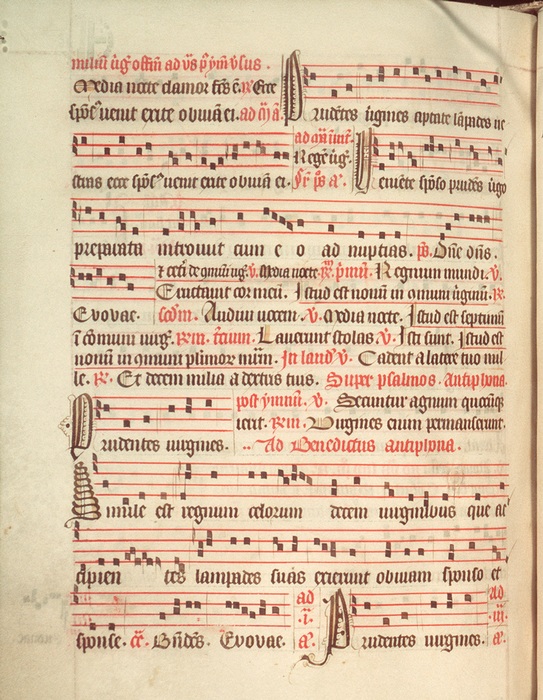 miliū ūgͥ offm̄ ad vs̄ p̄ ym̄ vsus.
Media nocte clamor fc̄s ē. R̸ Ecce
spōsꝰ uenit exite obuiā ei. ad m̄ a. Prudētes ūgines aptate lāpades ue
ad
stras ecce spōsꝰ uenit exite obuiā ei. Regē ūgͥ. p̄s a. Veniēte spōso prudēs ūgo
preparata introiuit cum e o ad nuptias. p̄s. Dn̄e dn̄s.
v̸. Media nocte. Regnum mundi. v̸.
Eructauit cor meū. Istud est nonū in ūginū. R̸.
Evovae. scd̄m. Audiui uocem. v̸. Media nocte. Istud est septimū
ī cōmuni uirgͥ. R̸m. tꝰcium. Lauerunt stolas. v̸. Isti sunt. Istud est
nonū in plimor mr̄m. In laudꝰ v̸. Cadent a latere tuo mil
le. R̸. Et decem milia a dextris tuis. Super psalmos. Antiphona.
post ymnū. v̸. Secuntur agnum quocūqꝫ
ierit. R̸m. Uirgines enim permanserunt.
Prudentes uirgines. Ad Benedictus antiphona.
Simile est regnum celorum decem uirginibus que ac
cipien tes lampades suas exierunt obuiam sponso et
sponse. Bn̄dc̄s. Evovae. ad .i. a. Prudentes uirgines. ad .iii. a.